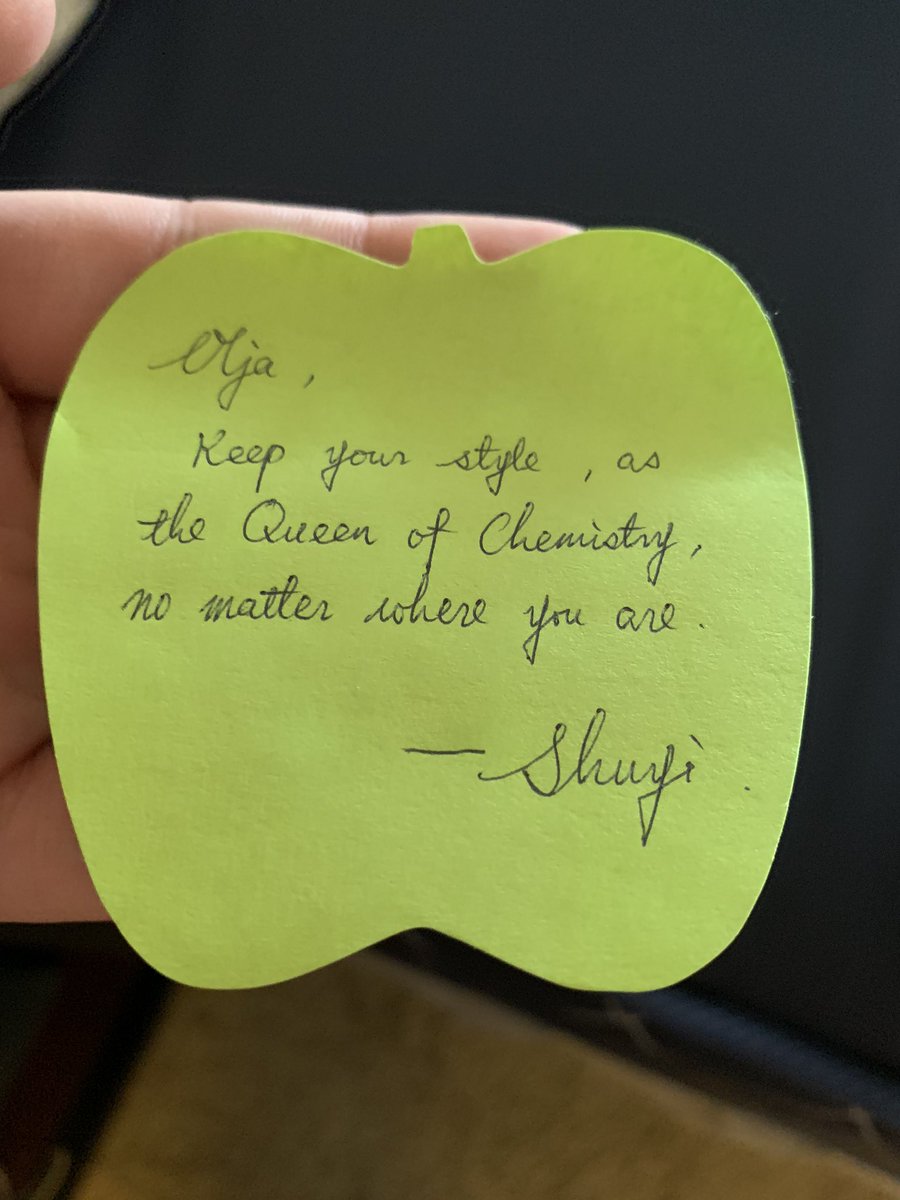 Keep your style , as
the Queen of Chemistry,
no matter where you are.
— Shuyi .